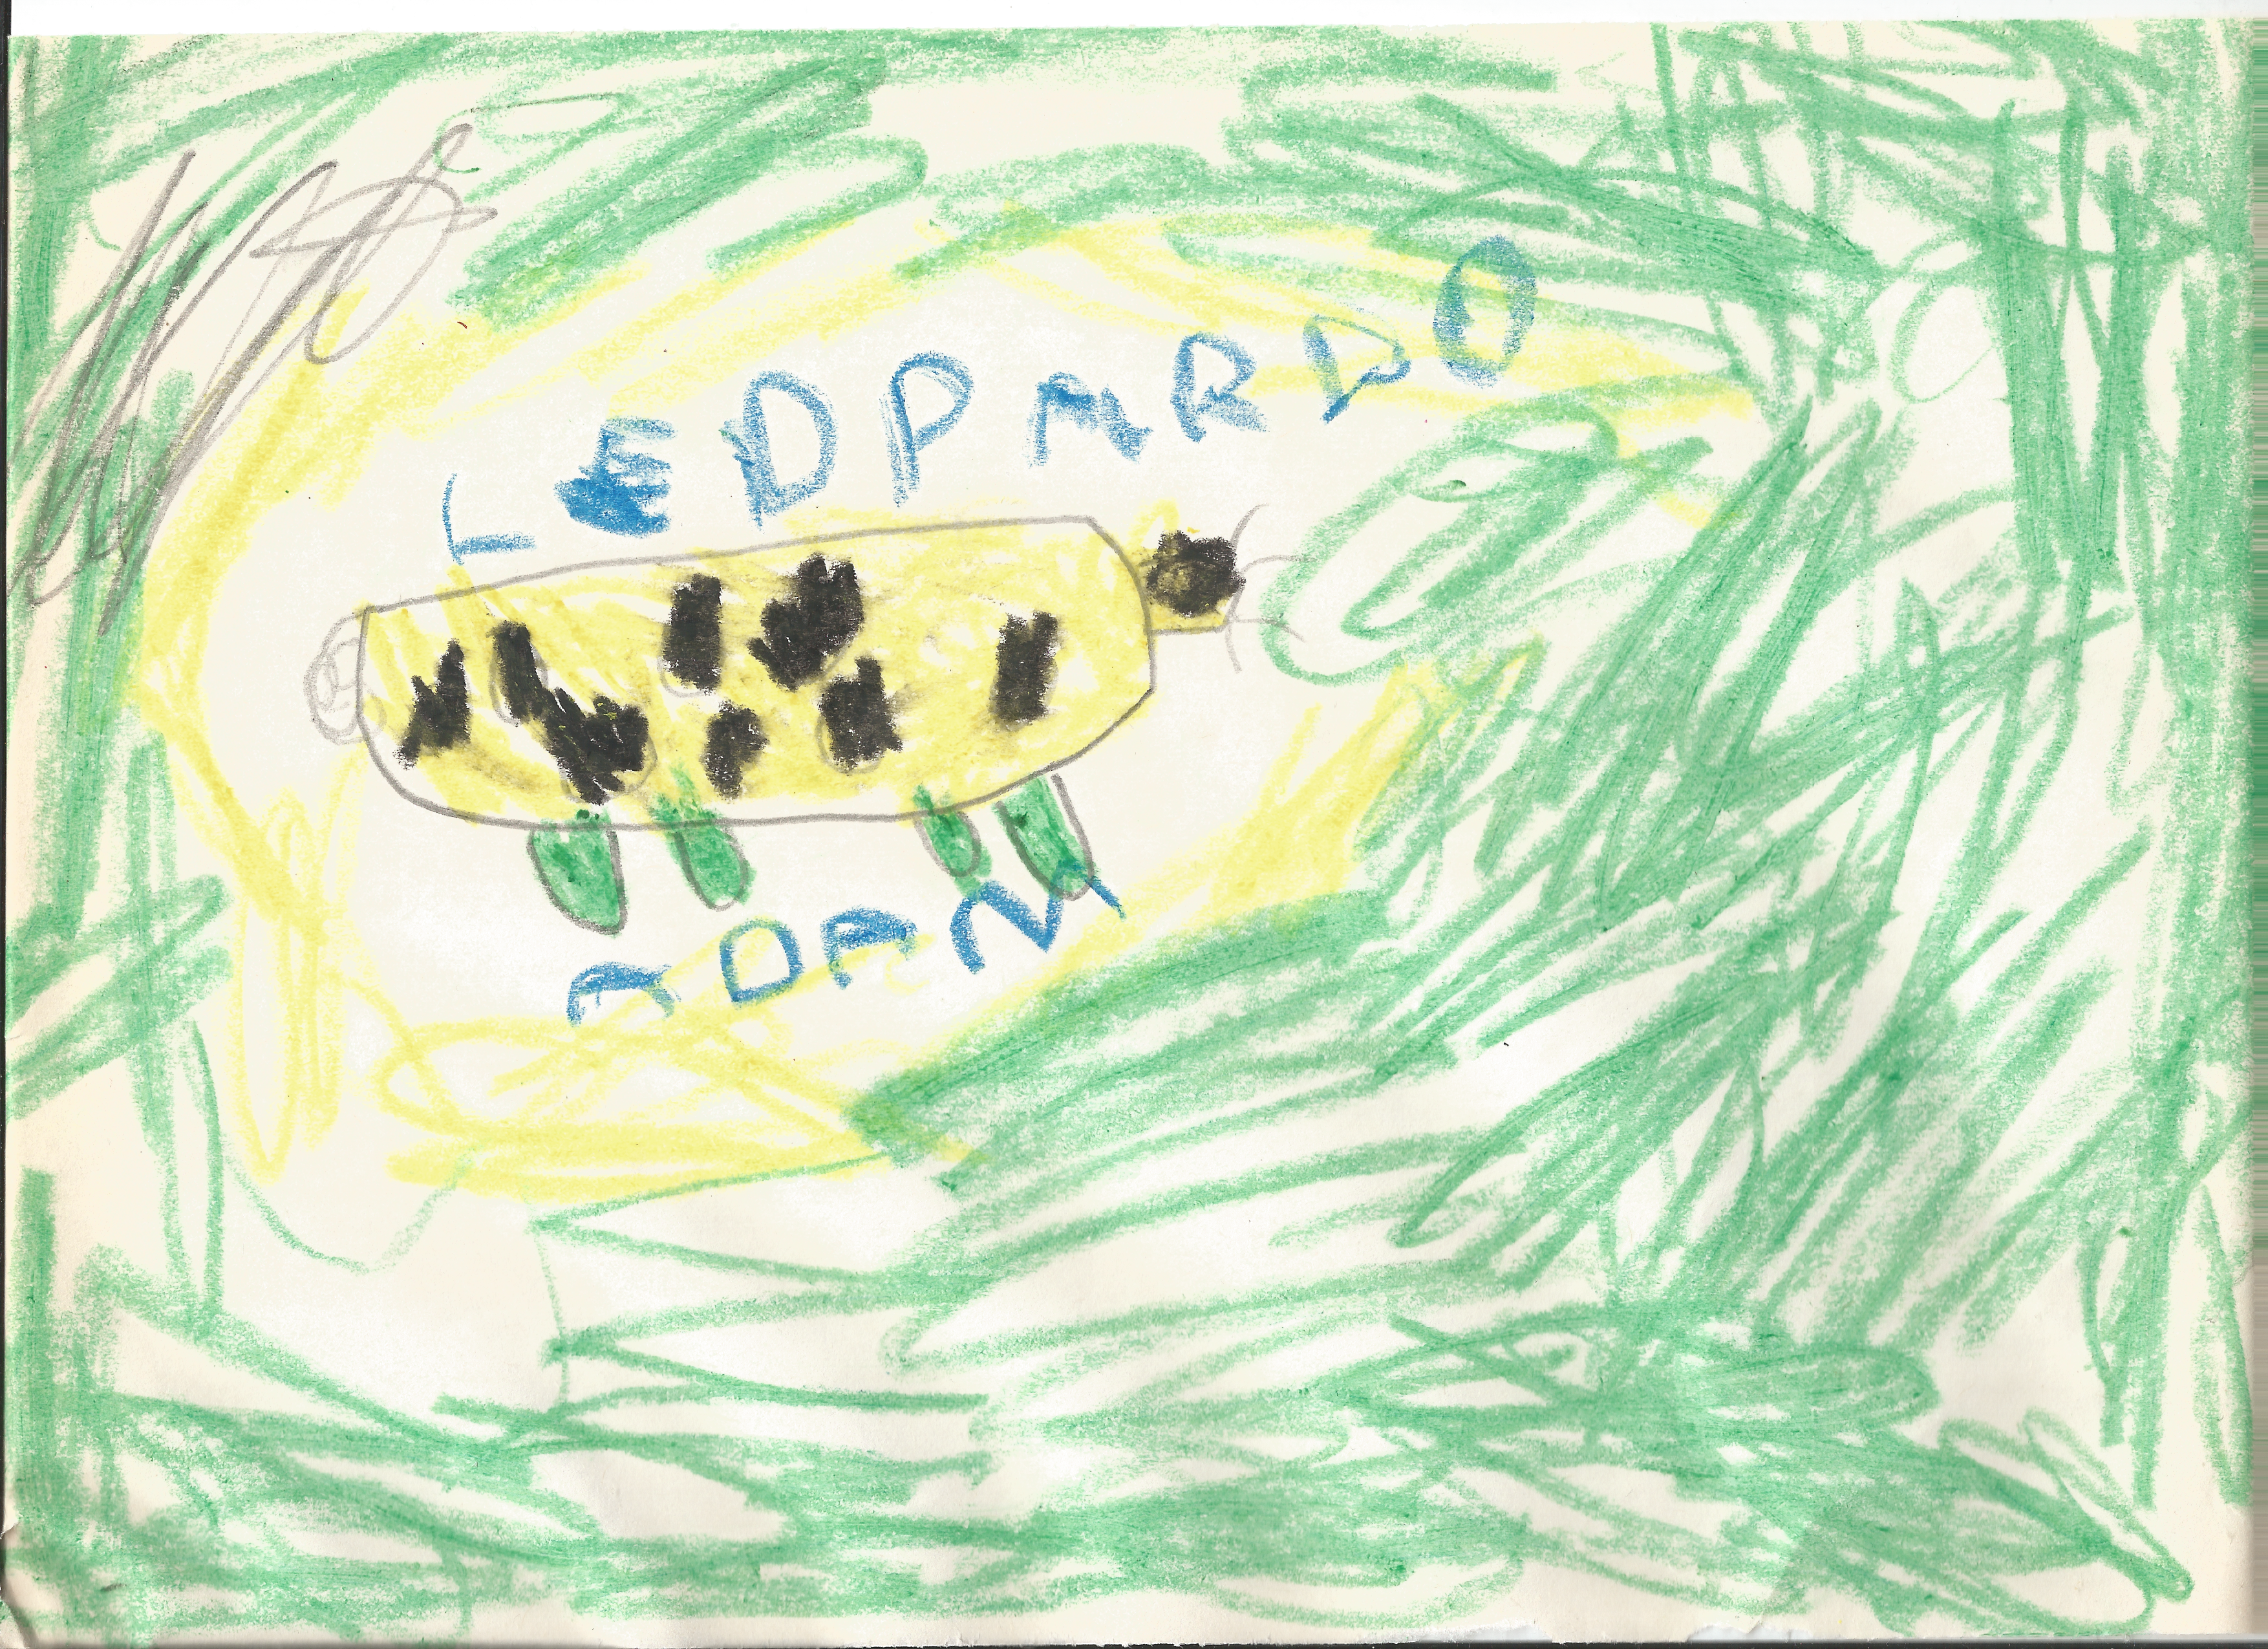 LEOPARDO
ADAM